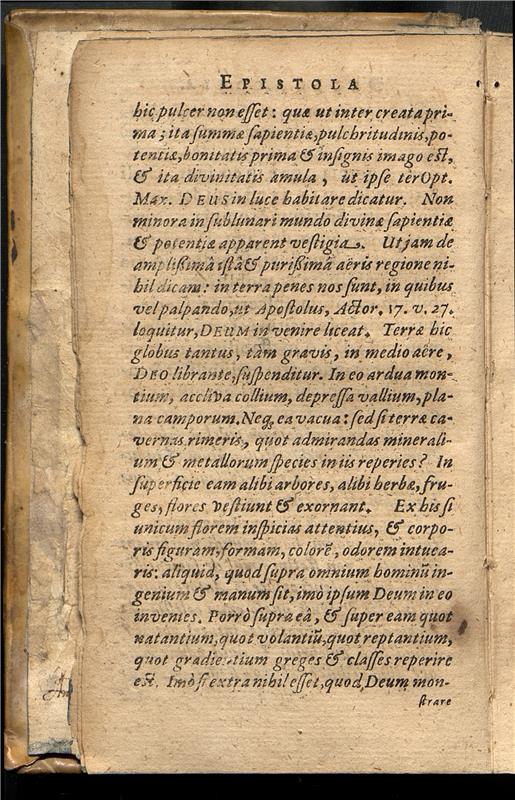 EPISTOLA
hic pulcer non eſſet : quæ ut inter creata pri-
ma ; ita ſummæ ſapientiæ, pulchritudinis, po-
tentiæ, bonitatis prima & inſignis imago eſt,
& ita divinitatis æmula , ut ipſe ter Opt.
Max. DEUS in luce habitare dicatur. Non
minora in ſublunari mundo divinæ ſapientiæ
& potentiæ apparent veſtigia. Ut jam de
ampliſſimâ iſtâ & puriſſimâ aëris regione ni-
hil dicam : in terra penes nos ſunt, in quibus
vel palpando, ut Apoſtolus, Actor. 17. v. 27.
loquitur, DEUM in venire liceat. Terræ hic
globus tantus, tàm gravis, in medio aëre,
DEO librante, ſuſpenditur. In eo ardua mon-
tium, accliva collium, depreſſa vallium, pla-
na camporum. Neq; ea vacua : ſed ſi terræ ca-
vernas rimeris, quot admirandas minerali-
um & metallorum ſpecies in iis reperies? In
ſuperficie eam alibi arbores, alibi herbæ, fru-
ges, flores veſtiunt & exornant. Ex his ſi
unicum florem inſpicias attentius, & corpo-
ris figuram, formam, colorē, odorem intuea-
ris: aliquid, quod ſupra omnium hominū in-
genium & manum ſit, imò ipſum Deum in eo
invenies. Porrò ſupra eâ, & ſuper eam quot
natantium, quot volantiū, quot reptantium,
quot gradientium greges & claſſes reperire
eſt. Imò ſi extra nihil eſſet, quod Deum mon-
ſtrare